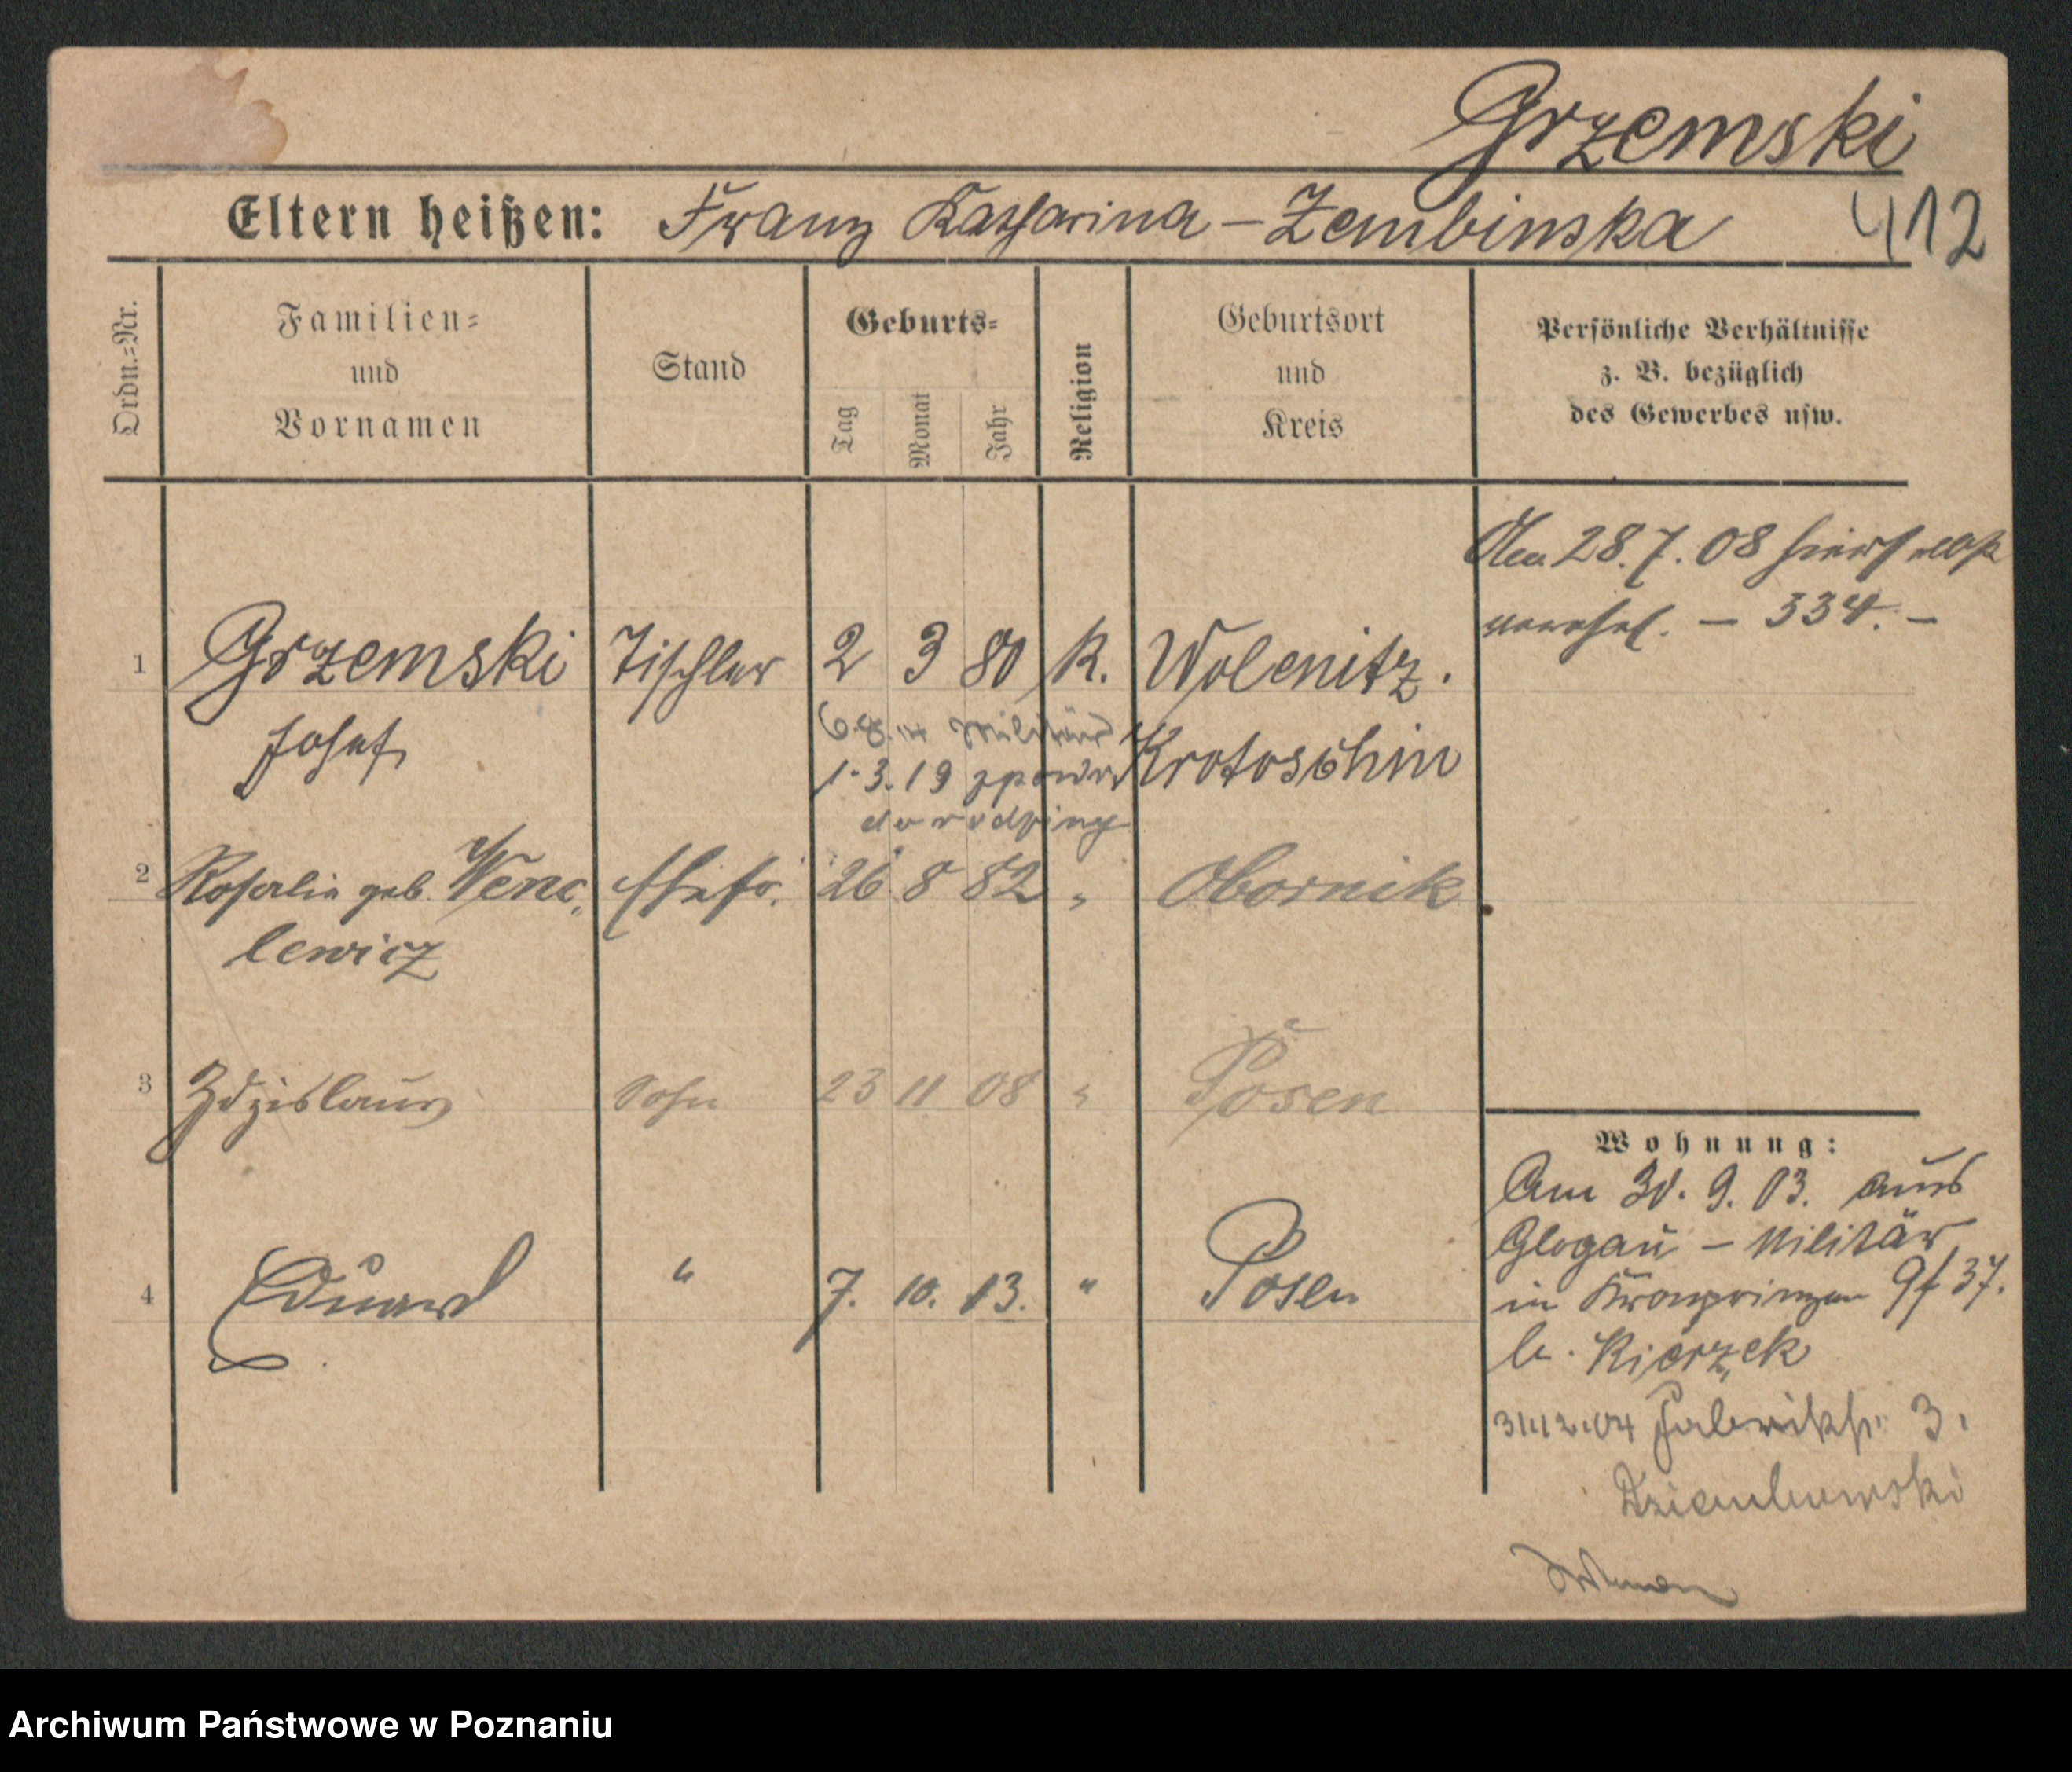 Grzemski
Eltern heißen: Franz Katharina – Zembinska
412
Ordn.=Nr.
Familien=
und
Vornamen
Stand
Geburts=
Tag
Monat
Jahr
Religion
Geburtsort
und
Kreis
Persönliche Verhältnisse
z. B. bezüglich
des Gewerbes usw.
Am 28.7.08 hierselbst
verehel. – 334. –
1 Grzemski Tischler 2 3 80 K. Wolenitz.
Josef Krotoschin
6.8.14 Militär
1.3.19 z powr.
do rodziny
2 Rosalie geb. Wenc Ehefr. 26 8 82 " Obornik
lewicz
3 Zdzislaus Sohn 23 11 08 " Posen
4 Eduard " 7. 10. 13. " Posen
Wohnung:
Am 30. 9. 03. aus
Glogau – Militär
in Kronprinzen 37.
b. Kierzek
31.12.04 Fabrikstr. 3.
Archiwum Państwowe w Poznaniu